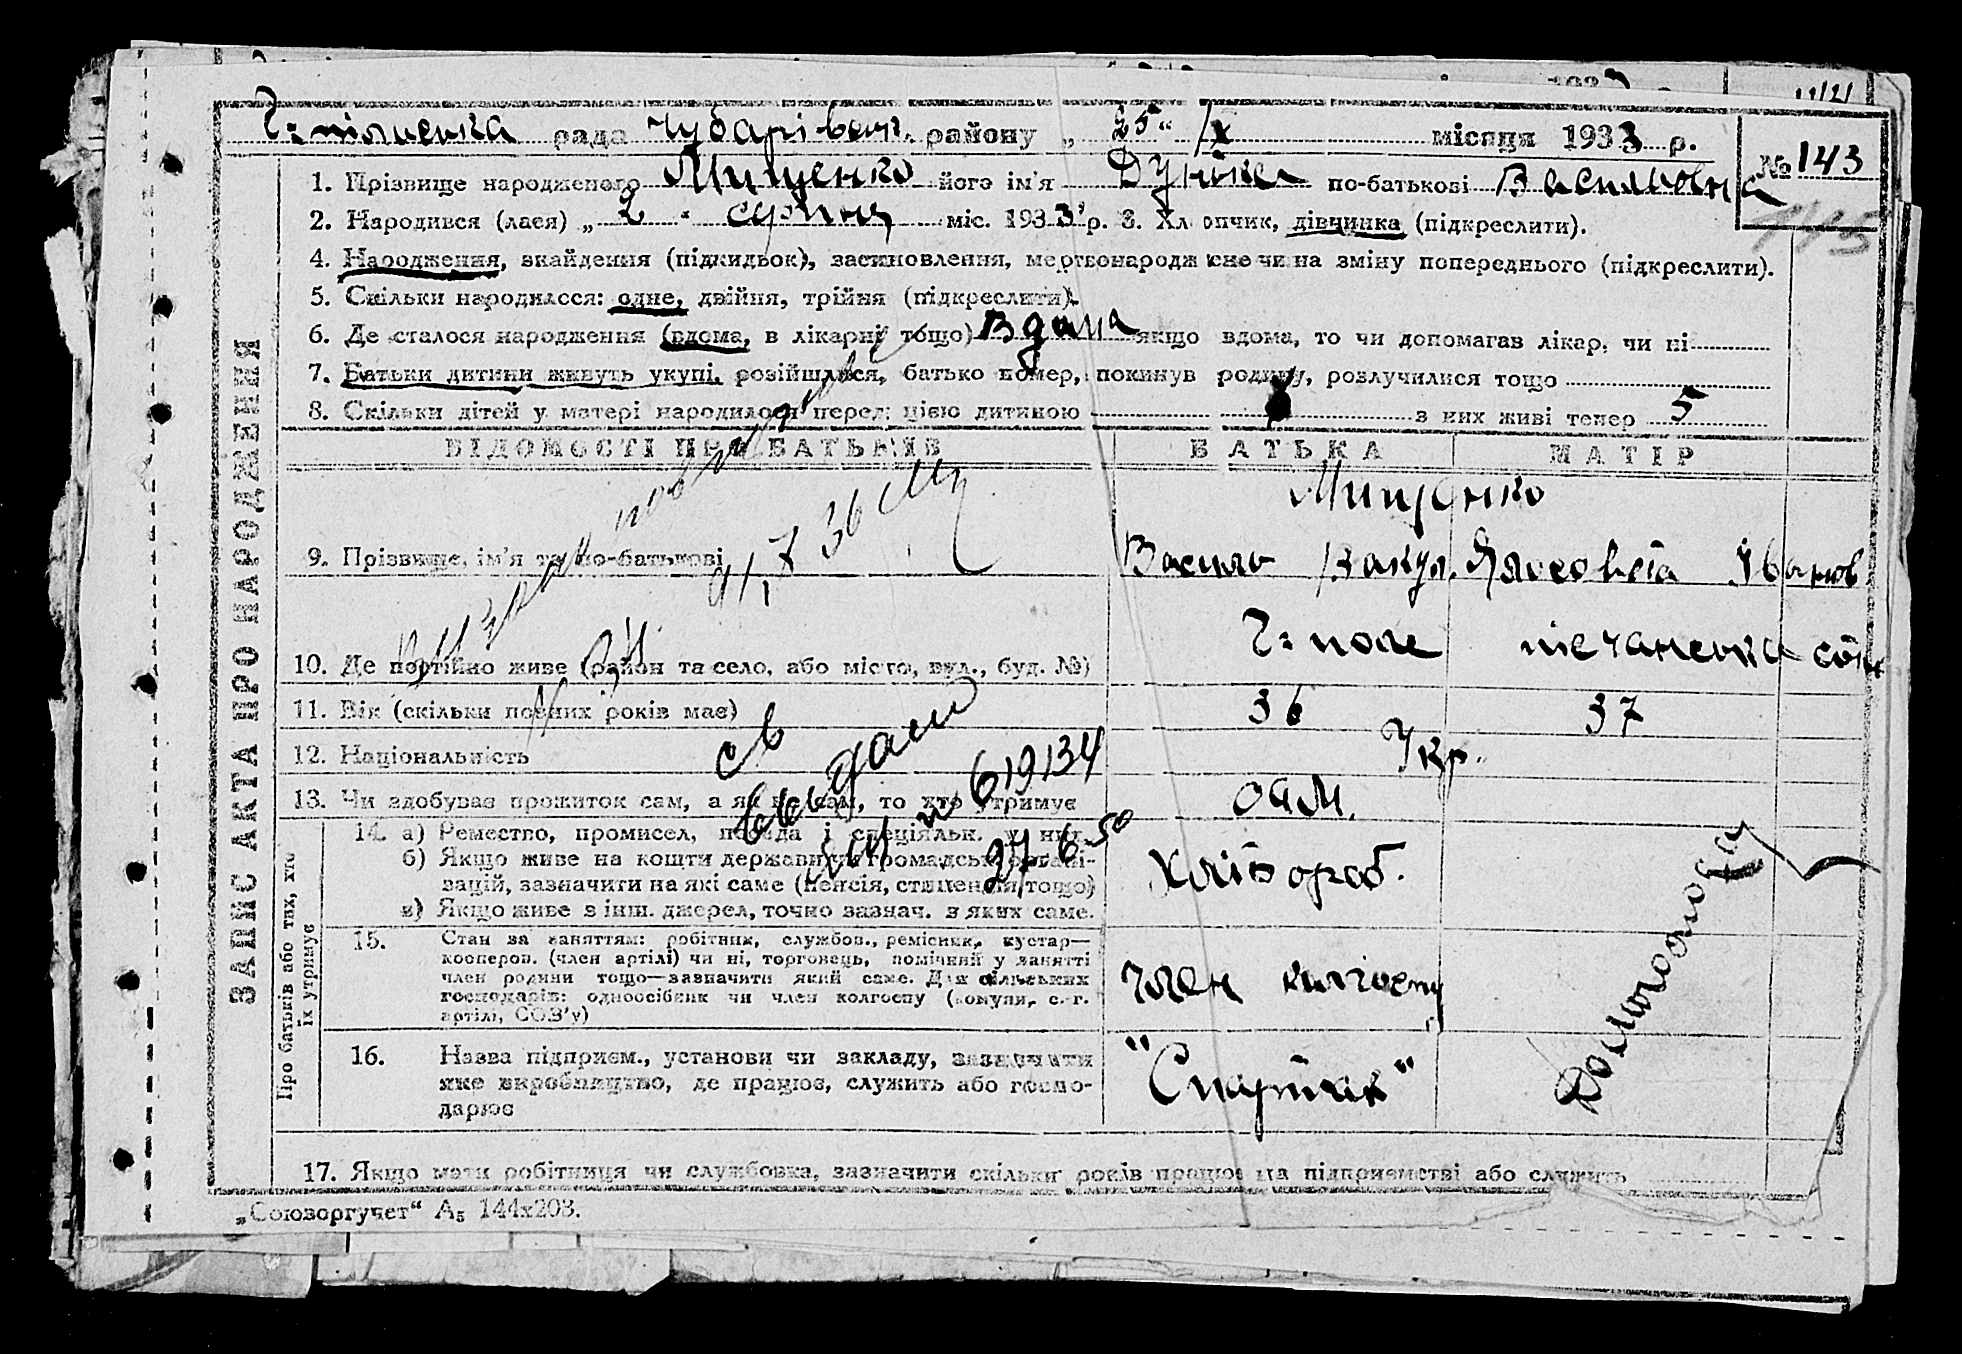 рада Чубарівськ. району „25“ IX місяця 1933 р.
№ 143
1. Прізвище народженого Мищенко його ім'я Дунька по-батькові Васильовна
145
2. Народився (лася) „2“ серпня міс. 1933 р. 3. Хлопчик, дівчинка (підкреслити).
4. Народження, знайдення (підкидьок), застновлення, мертвонароджене чи на зміну попереднього (підкреслити).
5. Скільки народилося: одне, двійня, трійня (підкреслити).
6. Де сталося народження (вдома, в лікарні тощо) Вдома якщо вдома, то чи допомагав лікар, чи ні
7. Батьки дитини живуть укупі, розійшлися, батько помер, покинув родину, розлучилися тощо
8. Скільки дітей у матері народилося перед цією дитиною з них живі тепер 5
ВІДОМОСТІ ПРО БАТЬКІВ БАТЬКА МАТІР
Мищенко
9. Прізвище, ім'я та по-батькові Василь Вакул. Іванов
10. Де постійно живе (район та село, або місто, вул., буд. №) Г=поле
11. Вік (скільки повних років має) 36 37
12. Національність Укр.
13. Чи здобував прожиток сам, а як не сам, то хто утримує сам.
ЗАПИС АКТА ПРО НАРОДЖЕННЯ
Про батьків або тих, хто їх утримує
14. а) Ремество, промисел, посада і спеціяльн. у них.
б) Якщо живе на кошти держави чи громадськ. організацій, зазначити на які саме (пенсія, стипендія тощо) Хлібороб.
в) Якщо живе з інш. джерел, точно зазнач. з яких саме.
св
выдано
№ 619134
27.6.50
15. Стан за заняттям: робітник, службов., ремісник, кустар—
кооперов. (член артілі) чи ні, торговець, помічний у занятті
член родини тощо—зазначити який саме. Для сільських
господарів: одноосібник чи член колгоспу (комуни, с.-г.
артілі, СОЗ'у) член колгоспу
16. Назва підприєм., установи чи закладу, зазначити
яке виробництво, де працює, служить або господарює
"Спартак"
17. Якщо мати робітниця чи службовка, зазначити скільки років працює на підприємстві або служить
„Союзоргучет“ А₅ 144х203.